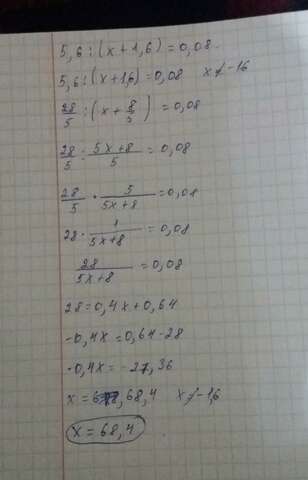 5,6 : (x + 1,6) = 0,08
5,6 : (x + 1,6) = 0,08 x ≠ -1,6
28/5 : (x + 8/5) = 0,08
28/5 : (5x + 8)/5 = 0,08
28/5 · 5/(5x + 8) = 0,08
28 · 1/(5x + 8) = 0,08
28/(5x + 8) = 0,08
28 = 0,4x + 0,64
-0,4x = 0,64 - 28
-0,4x = -27,36
x = 68,4 x ≠ -1,6
x = 68,4